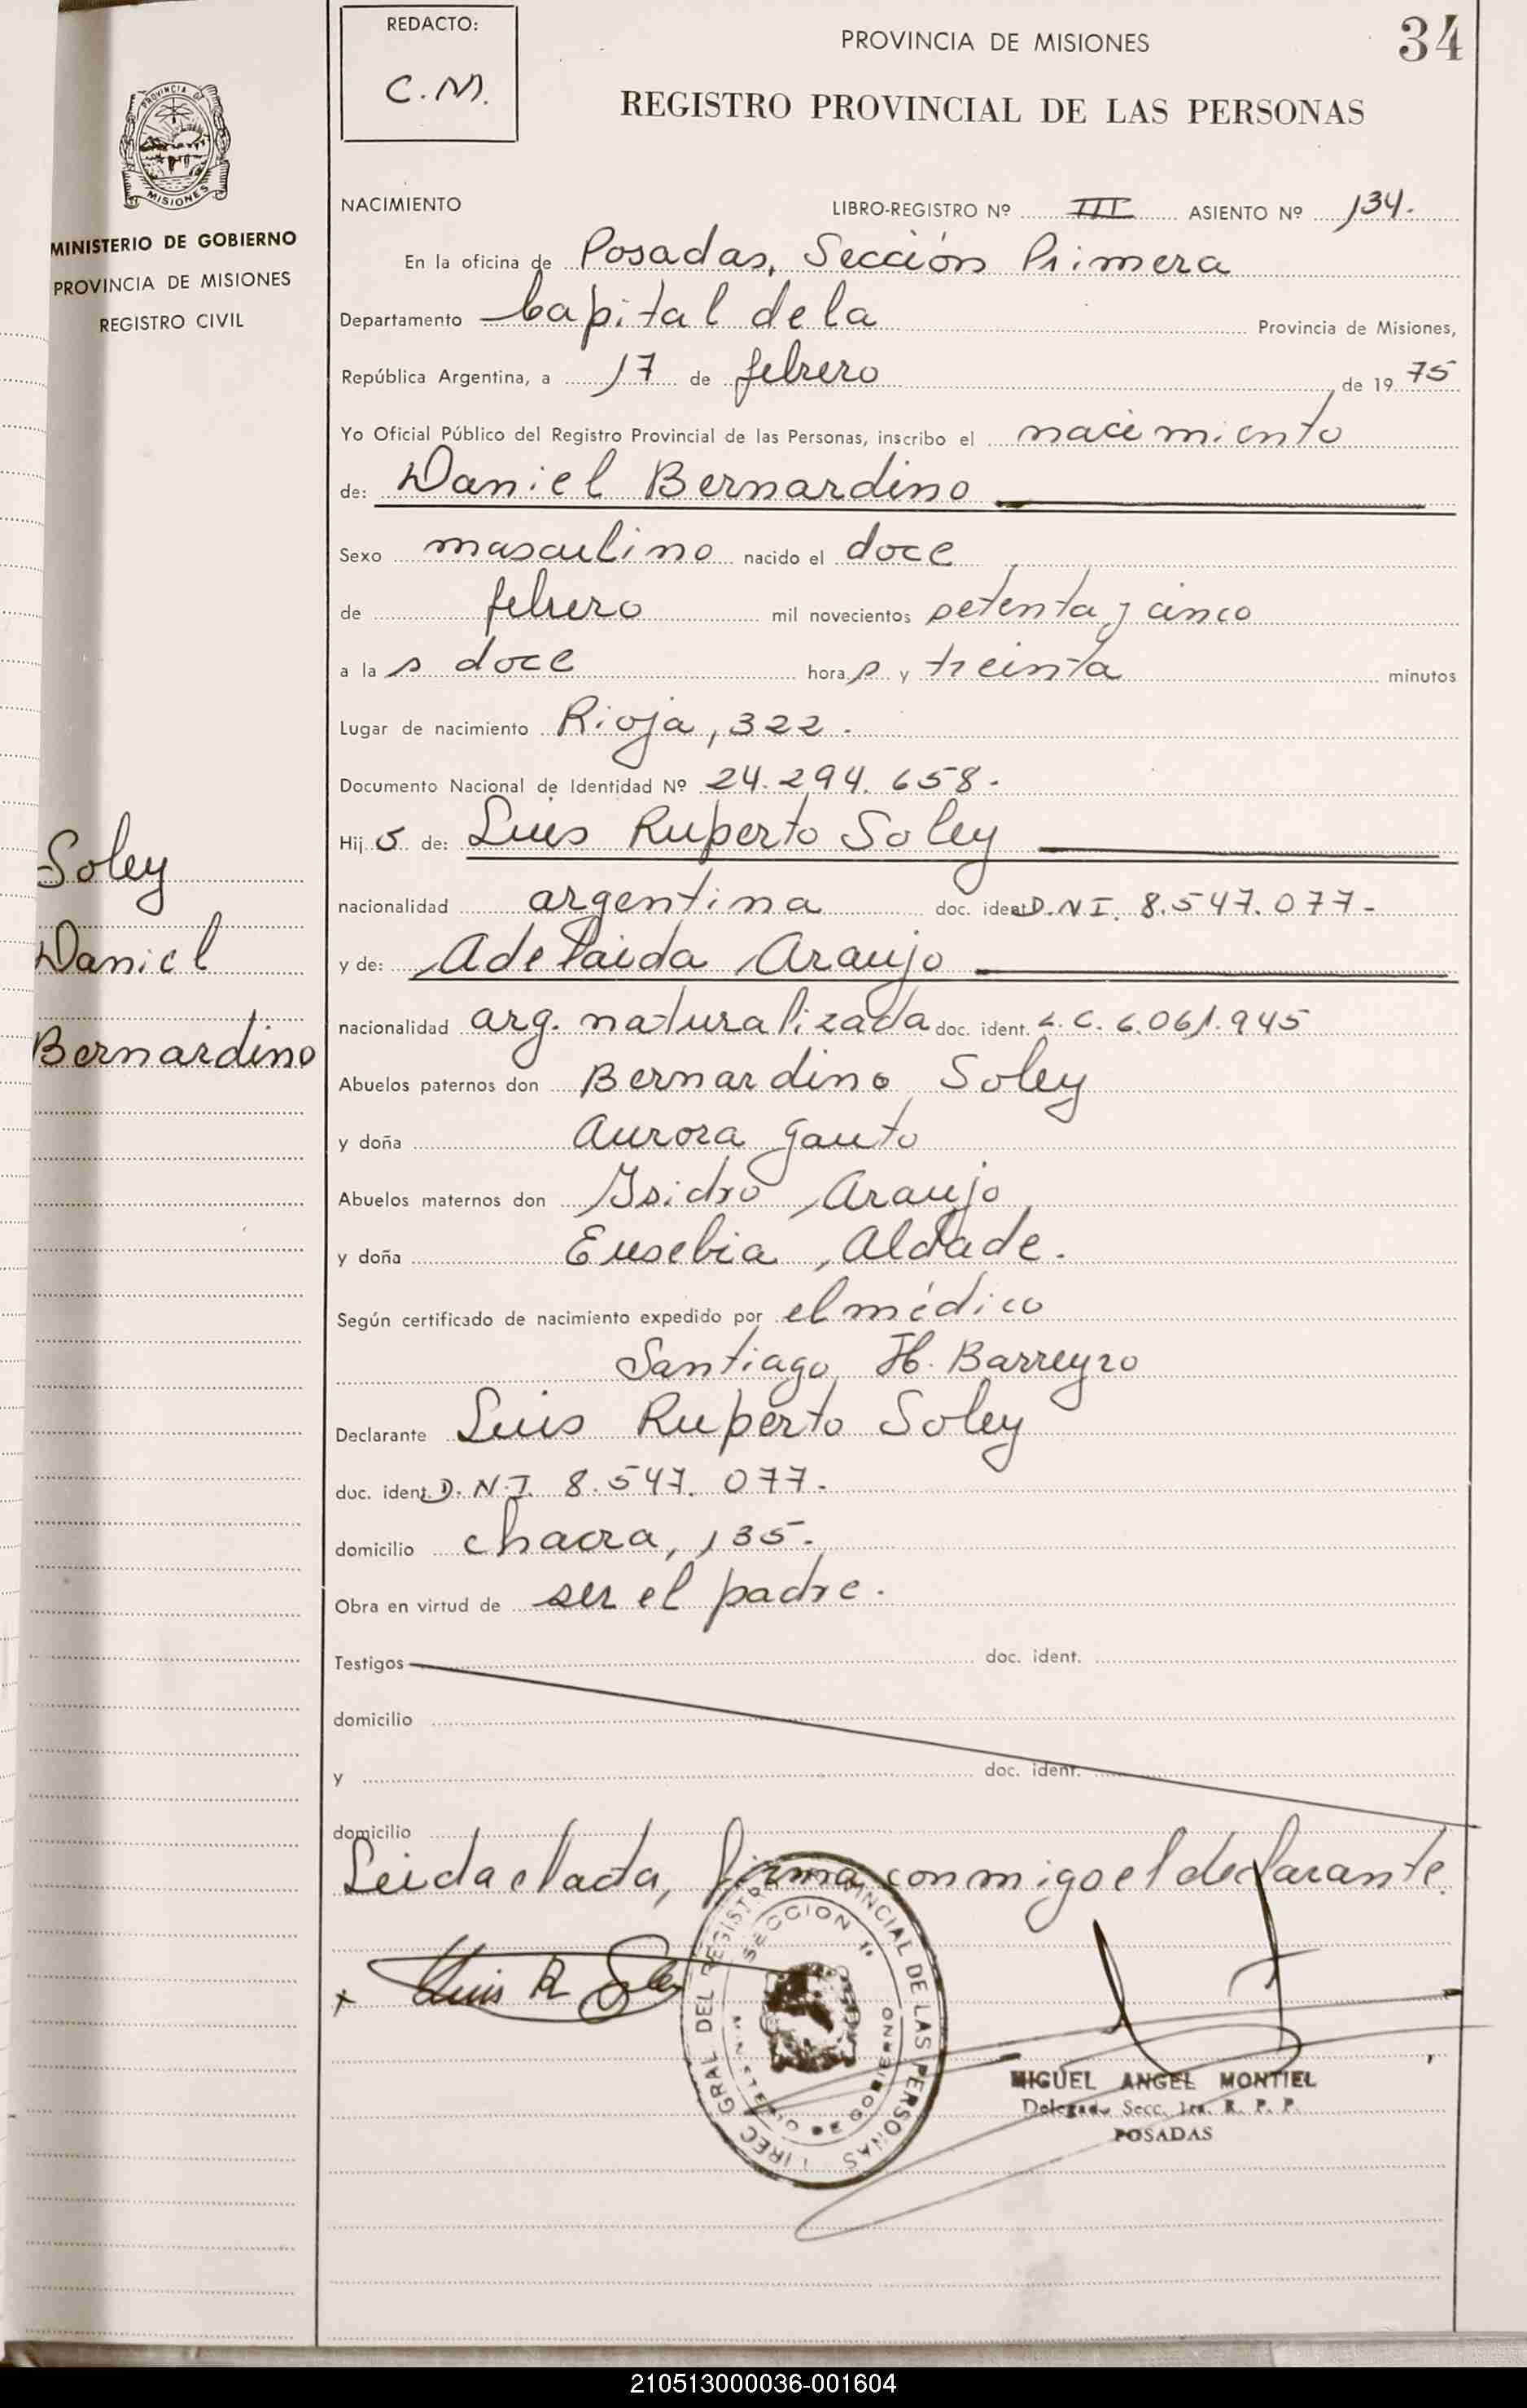 REDACTO:
C.M.
PROVINCIA DE MISIONES
34
REGISTRO PROVINCIAL DE LAS PERSONAS
PROVINCIA DE MISIONES
MINISTERIO DE GOBIERNO
PROVINCIA DE MISIONES
REGISTRO CIVIL
NACIMIENTO
LIBRO-REGISTRO Nº III ASIENTO Nº 134.
En la oficina de Posadas, Sección Primera
Departamento Capital de la Provincia de Misiones,
República Argentina, a 17 de febrero de 1975
Yo Oficial Público del Registro Provincial de las Personas, inscribo el nacimiento
de: Daniel Bernardino
Sexo masculino nacido el doce
de febrero mil novecientos setenta y cinco
a la s doce hora s y treinta minutos
Lugar de nacimiento Rioja, 322.
Documento Nacional de Identidad Nº 24.294.658.
Hij o de: Luis Ruperto Soley
nacionalidad argentina doc. ident. D.N.I. 8.547.077-
y de: Adelaida Araujo
nacionalidad arg. naturalizada doc. ident. L.C. 6.061.945
Abuelos paternos don Bernardino Soley
y doña Aurora Gauto
Abuelos maternos don Isidro Araujo
y doña Eusebia
Según certificado de nacimiento expedido por el médico
Santiago H. Barreyro
Declarante Luis Ruperto Soley
doc. ident. D.N.I. 8.547.077-
domicilio chacra, 135.
Obra en virtud de ser el padre.
Testigos doc. ident.
domicilio
y doc. ident.
domicilio
Leida el acta, firma conmigo el declarante.
Soley
Daniel
Bernardino
x Luis R Soley
GRAL DEL REGISTRO PROVINCIAL DE LAS PERSONAS
SECCION 1º
MIGUEL ANGEL MONTIEL
Delegado Secc. 1ra. R. P. P.
POSADAS
210513000036-001604